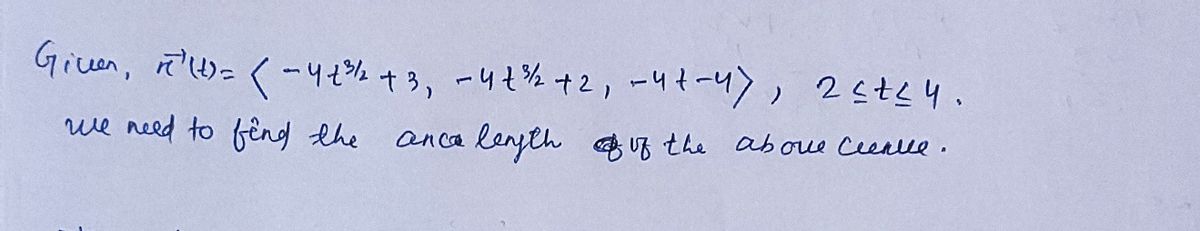 Given, r⃗(t) = ⟨ -4t^{3/2} + 3, -4t^{3/2} + 2, -4t - 4⟩, 2 ≤ t ≤ 4.
we need to find the arc length of the above curve.